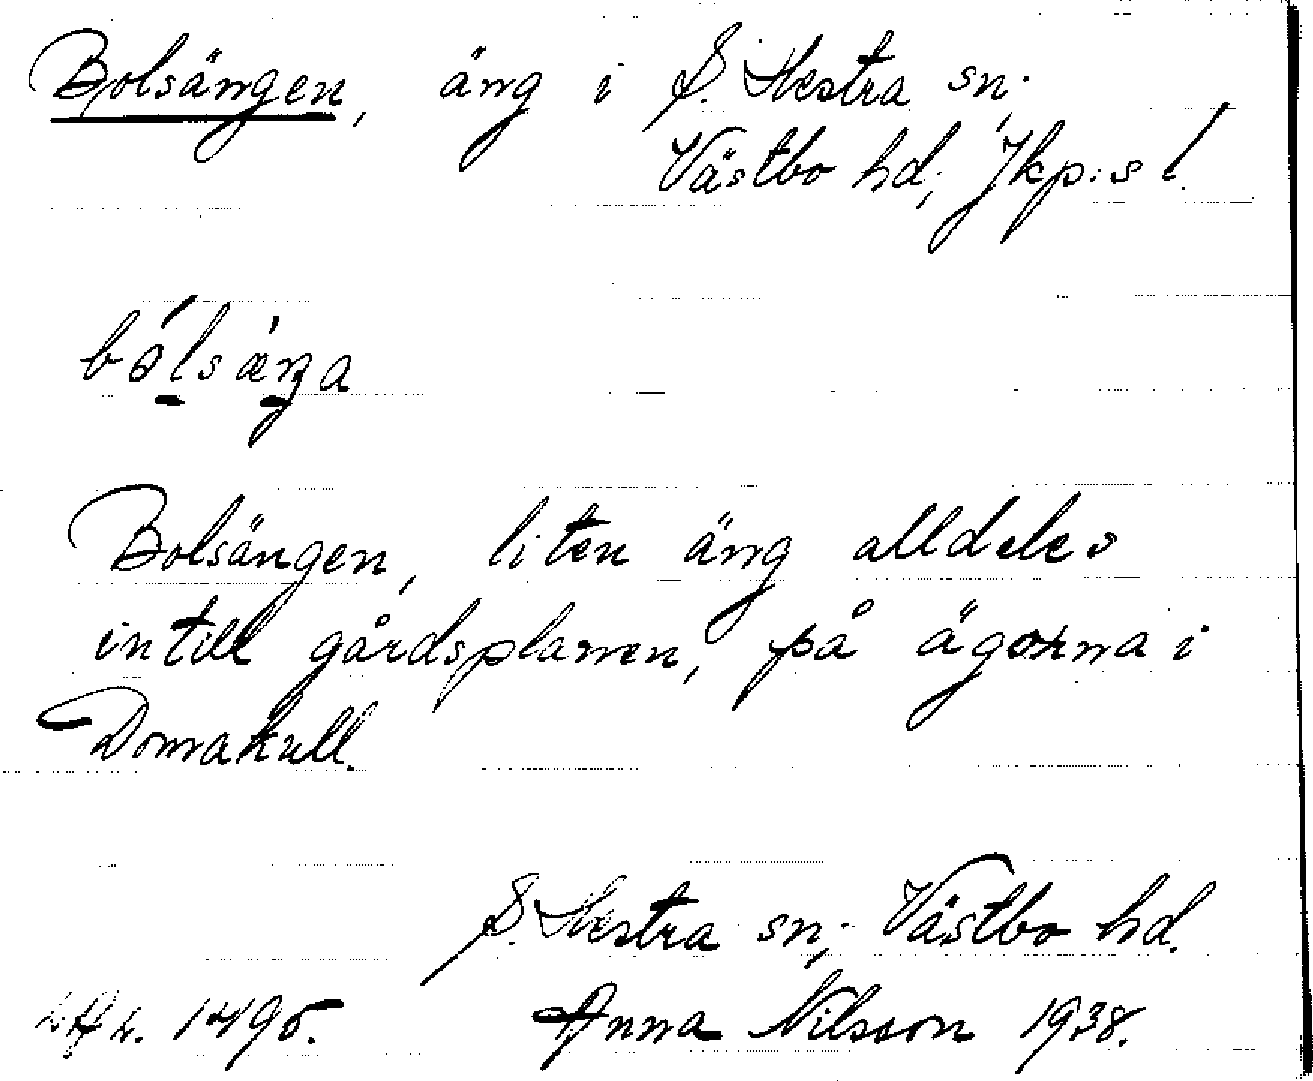 Bolsängen, äng i S. Hestra sn;
Västbo hd; Jkp:s l.
Bolsängen, liten äng alldeles
intill gårdsplanen, på ägorna i
Domakull.
S. Hestra sn; Västbo hd.
Anna Nilsson 1938.